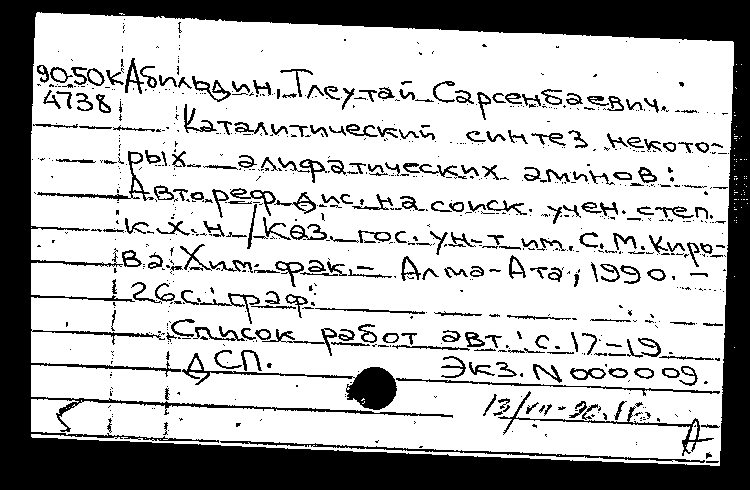 90.50К Абильдин, Тлеутай Сарсенбаевич.
4738
Каталитический синтез некото-
рых алифатических аминов:
Автореф. дис. на соиск. учен. степ.
к. х. н. / Каз. гос. ун-т им. С. М. Киро-
ва. Хим. фак. - Алма-Ата, 1990. -
26 с.: граф.
Список работ авт.: с. 17-19.
ДСП. Экз. N 000009.
13/VII-90.
А.